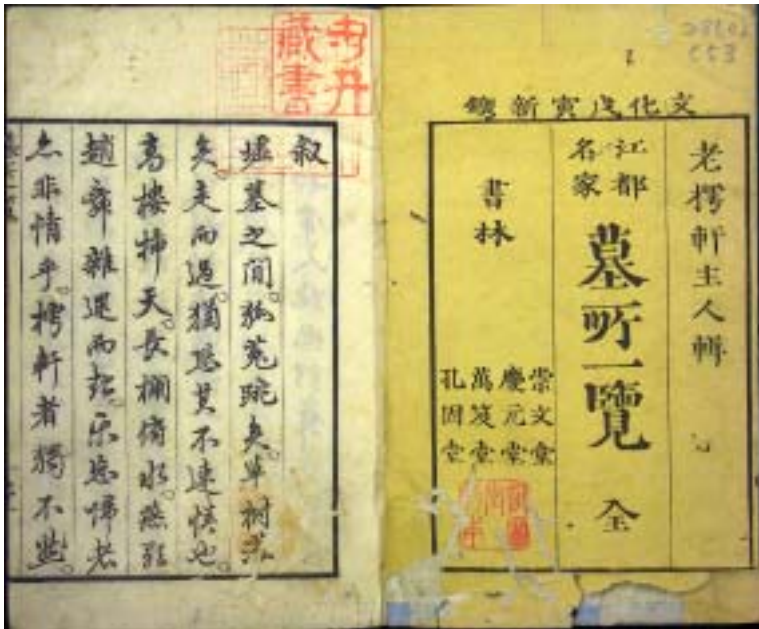 文化戊寅新鐫
老樗軒主人輯
江都
名家
墓所一覽 全
書林
崇文堂
慶元堂
萬笈堂
孔固堂
藏書
叙
墟墓之間狐菟跪矣草樹荒
矣走而過猶恐其不速慎也
高樓插天長欄倚水燕歌
趙舞雜遝而起樂忘帰者
亦非情乎樗軒者獨不然